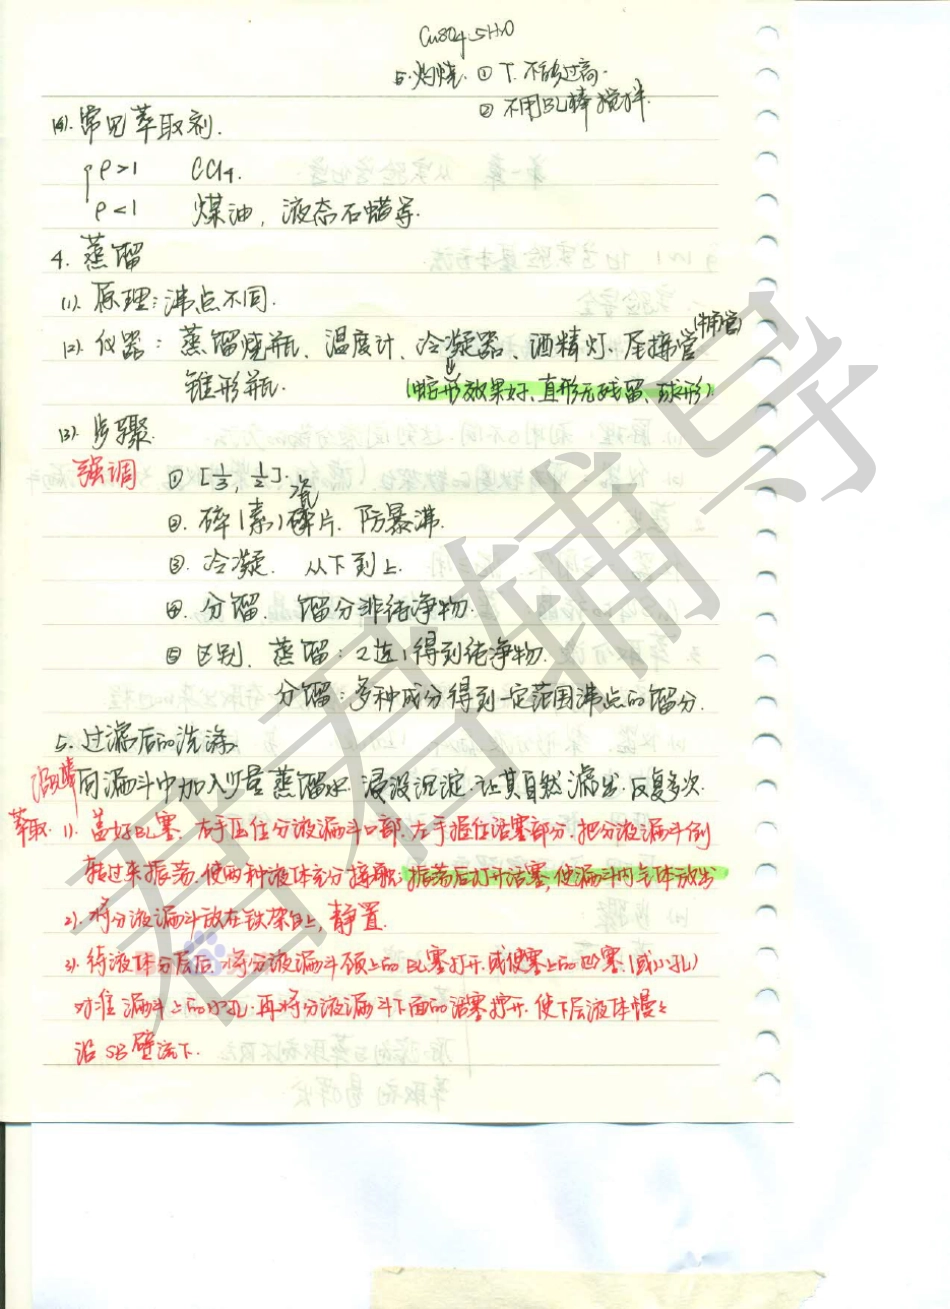 CuSO4·5H2O
5. 灼烧. ① T. 不能过高.
② 不用BL棒搅拌.
(4). 常见萃取剂.
ρ>1 CCl4.
ρ<1 煤油, 液态石蜡等.
4. 蒸馏
(1). 原理: 沸点不同.
(2). 仪器: 蒸馏烧瓶、温度计、冷凝器、酒精灯、尾接管(牛角管)
锥形瓶. (蛇形效果好、直形无残留、球形)
(3). 步骤.
强调 ① [1/3, 1/2].
②. 碎(素)瓷片. 防暴沸.
③. 冷凝. 从下到上.
④. 分馏. 馏分非纯净物.
⑤ 区别. 蒸馏: 2选1得到纯净物.
分馏: 多种成分得到一定范围沸点的馏分.
5. 过滤后的洗涤
沿玻棒向漏斗中加入少量蒸馏水. 浸没沉淀. 让其自然滤出. 反复多次.
萃取. 1). 盖好BL塞. 右手压住分液漏斗口部. 左手握住活塞部分. 把分液漏斗倒
转过来振荡. 使两种液体充分接触; 振荡后打开活塞, 使漏斗内气体放出
2). 将分液漏斗放在铁架台上, 静置.
3). 待液体分层后. 将分液漏斗颈上的BL塞打开. 或使塞上的凹塞. (或小孔)
对准漏斗上的小孔. 再将分液漏斗下面的活塞拧开. 使下层液体慢慢
沿SB壁流下.
君君辅导